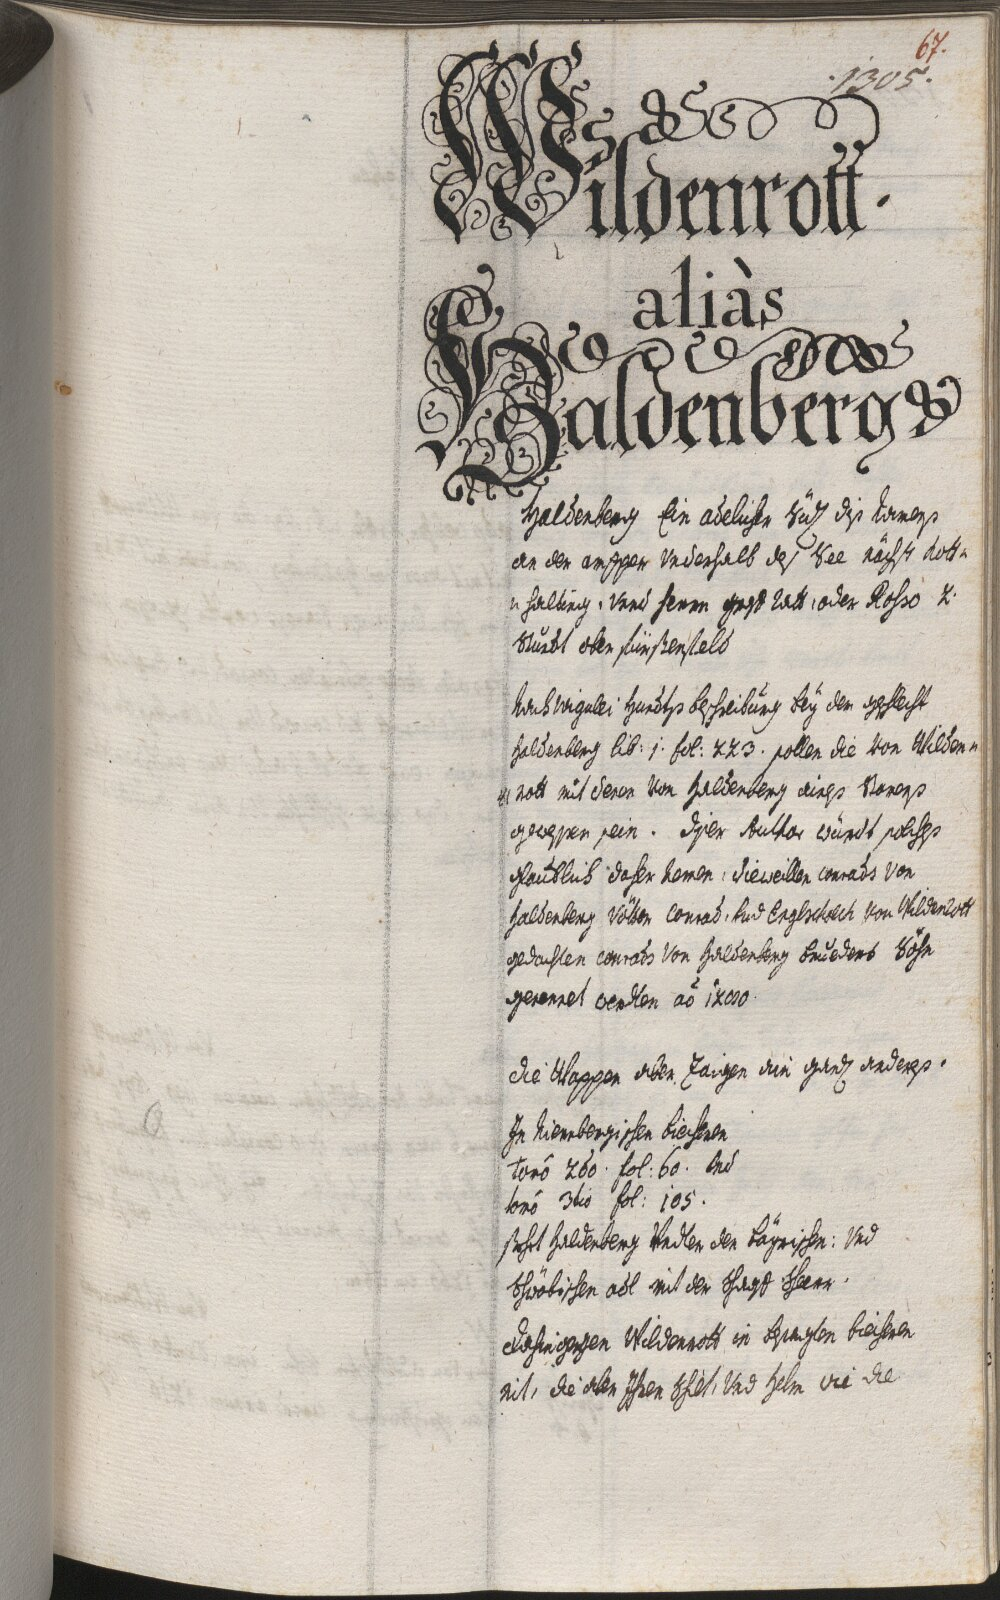 67.
.1305.
Wildenrott.
aliàs
Haldenberg
Haldenberg Ein adelicher Süz diss Namenss
an der ampper Underhalb dess See nächst Kott-
Und oder Rosso
ober fürstenfeld
Nach Wigulei Hundtss beschreibung bey den geschlecht
Haldenberg lib: 1. fol: 223. sollen die Von Wilden-
rott mit denen Von Haldenberg ainess Namenss
gewessen sein. diser Author würdt solchss
glaublich daher nemen, dieweillen conrads Von
Haldenberg Vötter Conrad, Und Von Wildenrott
gedachten conrads Von Haldenberg brueders Söhn
genennet werdten aõ 1200.
die Wappen aber Zaigen ain ganz anderss.
In Niernbergischen biechern
tomô 2do. fol: 60. Und
tomô 3tio fol: 105.
steht Haldenberg Undter den bäyrischen: Und
Schwöbischen adl mit der Schaff Scheer.
Wildenrott in besagten biechern
nit, die aber Ihren Schilt, Und Helm wie die